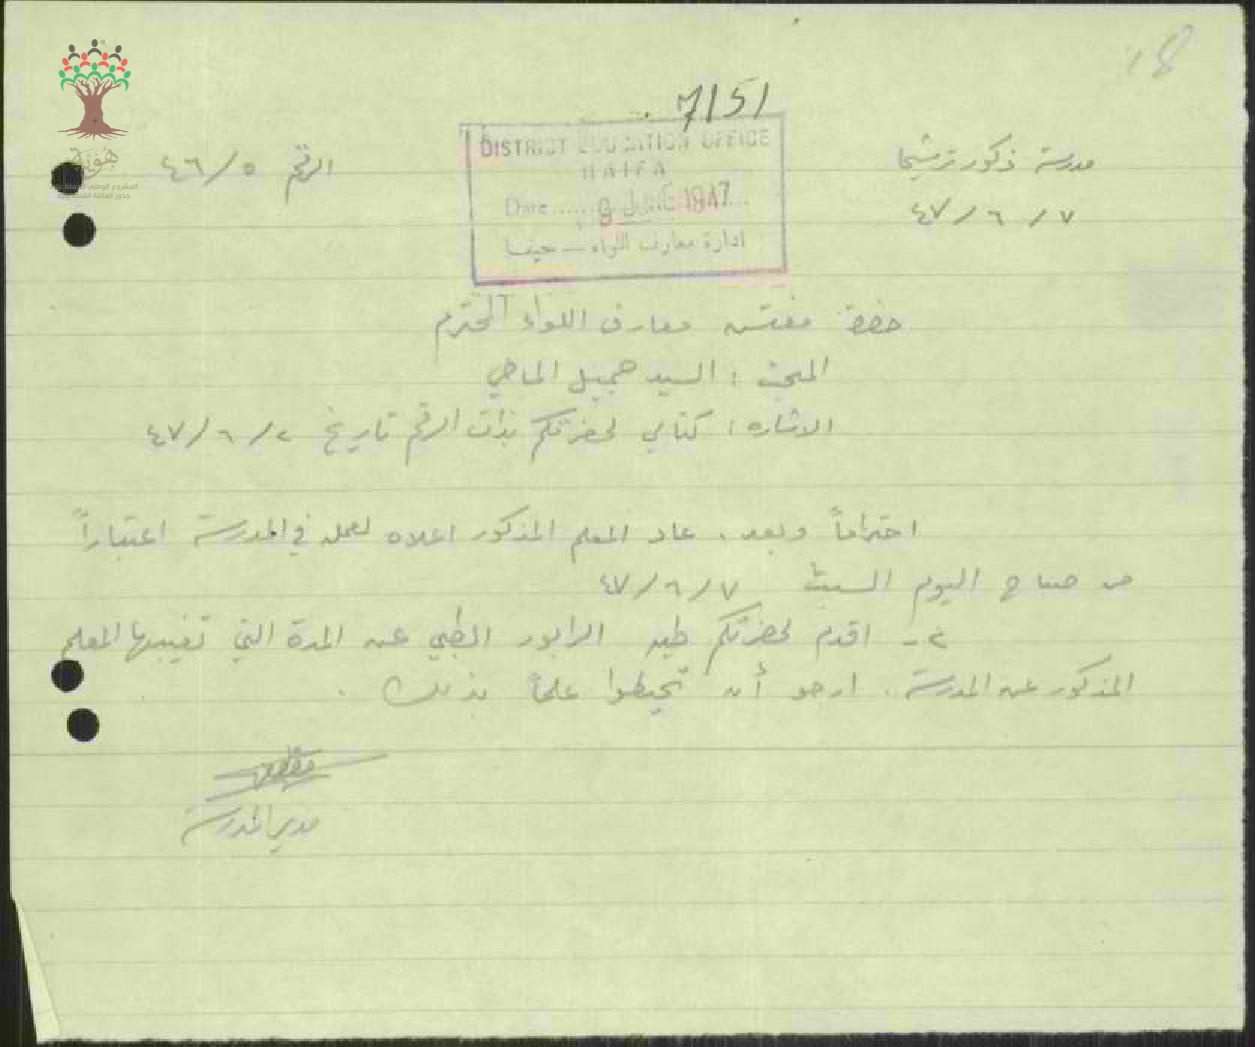 18
7/51
مدرسة ذكور ترشيحا
٤٧/٦/٧
DISTRICT EDUCATION OFFICE
HAIFA
Date ..... 9 JUNE 1947
ادارة معارف اللواء — حيفا
الرقم ٤٦/٥
هوية
حضرة مفتش معارف اللواء المحترم
المبحث : السيد جميل الماضي
الاشارة : كتابي لحضرتكم بذات الرقم تاريخ ٤٧/٦/٢
احتراماً وبعد . عاد المعلم المذكور اعلاه لعمله في المدرسة اعتباراً
من صباح اليوم السبت ٤٧/٦/٧
٢ـ اقدم لحضرتكم طيه الرابور الطبي عن المدة التي تغيبها المعلم
المذكور عن المدرسة . ارجو أن تحيطوا علماً بذلك .
مدير المدرسة